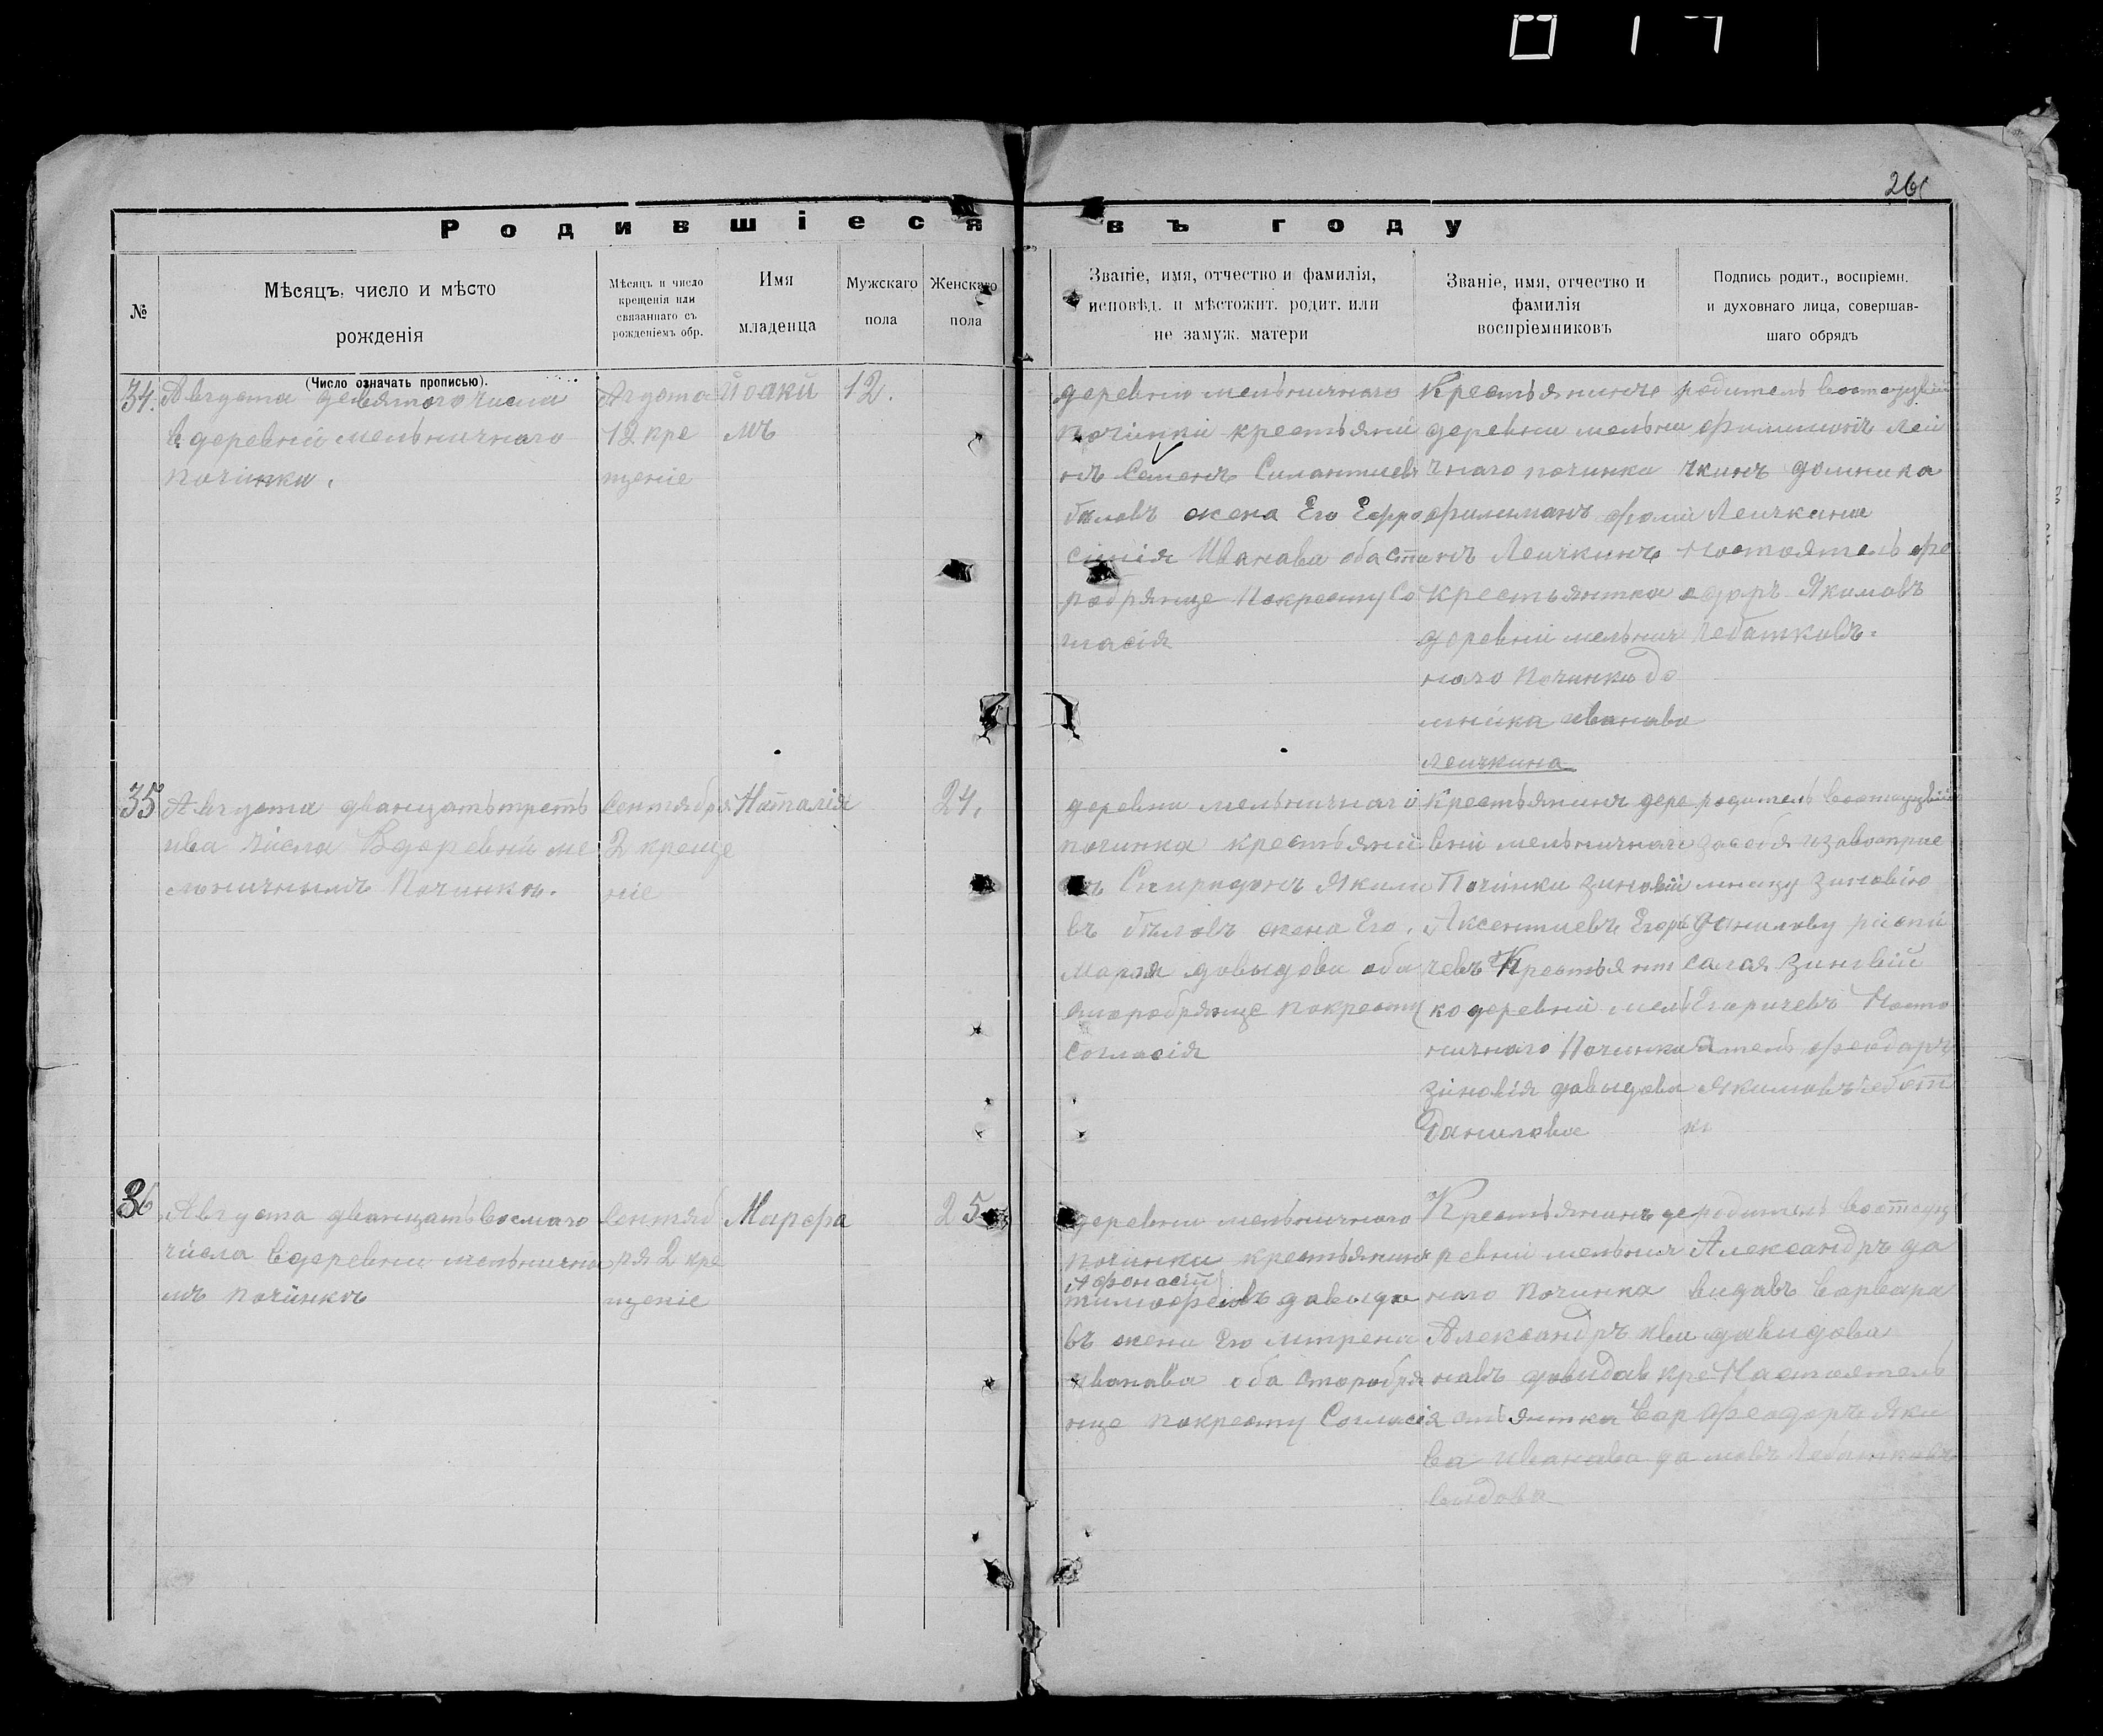 261
Родившіеся въ году
№
Мѣсяцъ, число и мѣсто
рожденія
(Число означать прописью).
Мѣсяцъ и число
крещенія или
связаннаго съ
рожденіемъ обр.
Имя
младенца
Мужскаго
пола
Женскаго
пола
Званіе, имя, отчество и фамилія,
исповѣд. и мѣстожит. родит. или
не замуж. матери
Званіе, имя, отчество и
фамилія
воспріемниковъ
Подпись родит., воспріемн.
и духовнаго лица, совершав-
шаго обрядъ
34.
Августа девятого числа
в деревни мельничнаго
починки.
Агуста
12 кре
щеніе
Иоаки
мъ
12.
деревню мельничнаго
починки крестьяни
нъ Семенъ Силантиевъ
бѣловъ жена Его Ефро
синія Иванава оба ста
робрянце покресту Со
гласія
Крестьянинъ
деревни мельни
чнаго починки
филиманъ фоми
нъ Леичкинъ
крестьянтка
деревни мельнич
наго починки до
мника иванава
Леичкина
родитель
Филимонъ Леи
чкинъ домника
Леичкина
Настоятель фе
одоръ Якимовъ
чебатковъ.
35
Августа дванцатьтреть
ива числа В деревни ме
льничнымъ починкъ.
Сентября
2 креще
ніе
Наталія
24.
деревни мельничнаго
починка крестьяни
нъ Спиридонъ Якимо
въ бѣловъ жена Его.
Мария давыдова оба
старобрянце покресту
согласія
Крестьянинъ дере
вни мельничнаго
Починки зиновий
Аксентиевъ Егоры
чевъ Крестьянт
ка деревни мель
ничнаго Починка
зиновия давыдова
Данилова
родитель
за себя и за воспріе
мницу зиновію
данилову
зиновий
Егоричевъ Насто
ятель феодоръ
Якимовъ чебат
ко
36
Августа дванцатьвосмаго
числа в деревни мельнична
мъ починкъ
Сентяб
ря 2 кре
щеніе
Марфа
25
деревни мельничнаго
починки крестьянинъ
Афонасий
тимофеевъ давыдо
въ жена Его мтрена
иванава оба старобря
нце покресту Согласія
Крестьянинъ де
ревни мельнич
наго починка
Александръ ива
навъ давидав кре
стьянтка вар
ва иванава да
выдова
родитель
Александръ да
видавъ варвара
давидова
Настоятель
Феодоръ Яки
мовъ Чебатковъ